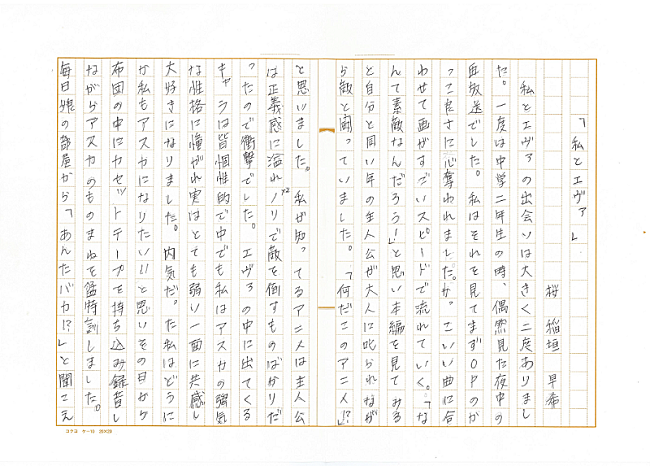 「私とエヴァ」
桜 稲垣 早希
私とエヴァの出会いは大きく二度ありまし
た。一度は中学二年生の時、偶然見た夜中の
再放送でした。私はそれを見てまずOPのか
っこよさに心奪われました。かっこいい曲に合
わせて画がすごいスピードで流れていく。「な
んて素敵なんだろう!」と思い本編を見てみる
と自分と同い年の主人公が大人に叱られなが
ら敵と闘っていました。「何だこのアニメ!?」
と思いました。私が知ってるアニメは主人公
は正義感に溢れノリノリで敵を倒すものばかりだ
ったので衝撃でした。エヴァの中に出てくる
キャラは皆個性的で中でも私はアスカの強気
な性格に憧がれ実はとても弱い一面に共感し
大好きになりました。内気だった私はどうに
か私もアスカになりたい!!と思いその日から
布団の中にカセットテープを持ち込み録音し
ながらアスカのものまねを猛特訓しました。
毎日娘の部屋から「あんたバカ!?」と聞こえ
コクヨ ケ-10 20×20